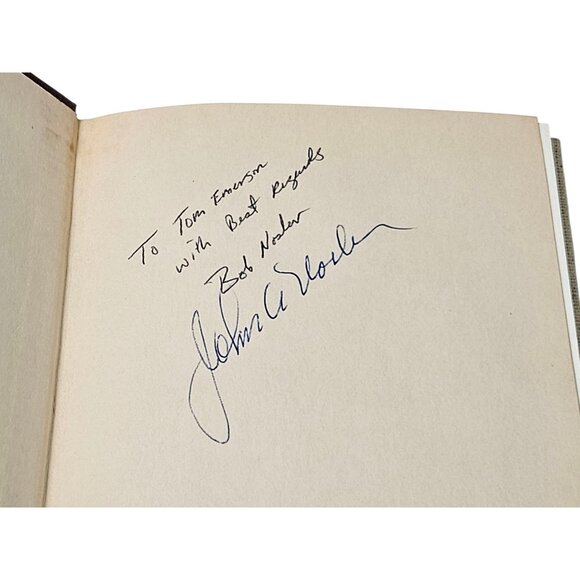 To Tom Emerson
with Best Regards
Bob Nosler
John A Nosler